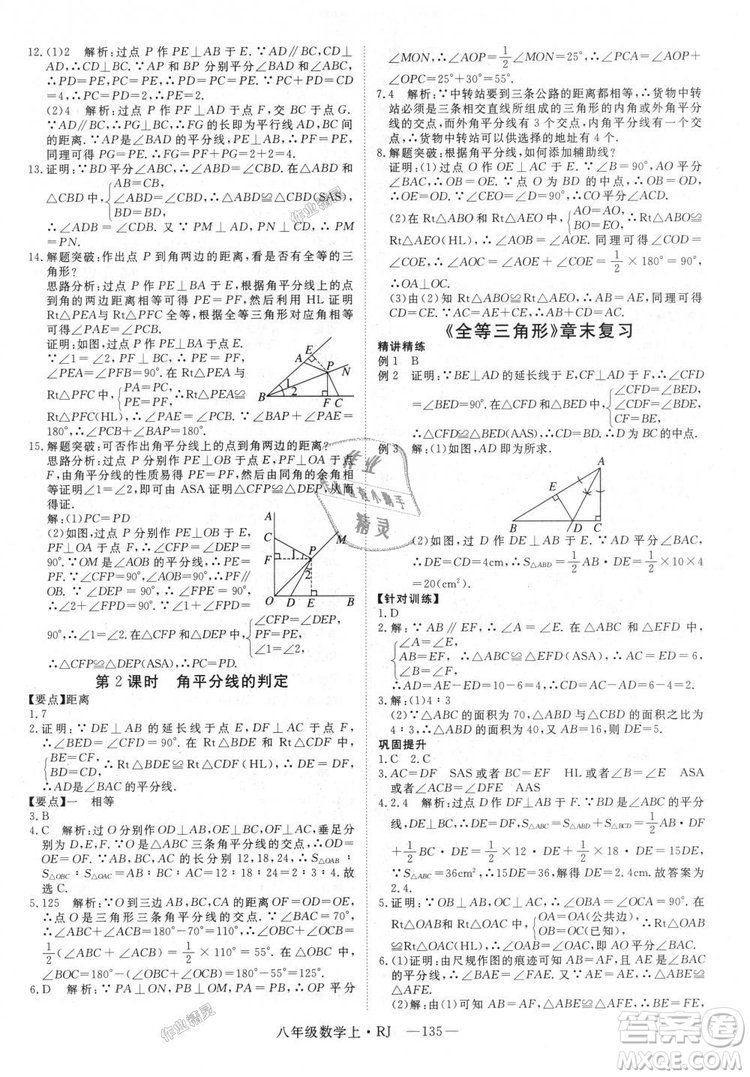 12.(1)2 解析:过点 P 作 PE⊥AB 于 E.∵AD∥BC,∴PD⊥
AD,∴PE⊥BC.∵AP 和 BP 分别平分∠BAD 和∠ABC,
∴PD=PE,PC=PE,∴PC=PE=PD.∵CD=4,∴PC
=PD=PE=2.
(2)4 解析:过点 P 作 PF⊥AD 于点 F,交 BC 于点 G.
∵AD∥BC,∴PG⊥BC,∴线段 FG 的长即为 AD 与 BC
的距离.同理可得 PG=PE=PF=2,∴FG=PF+PG=4.
13.证明:∵BD 平分∠ABC,∴∠ABD=∠CBD.在△ABD 和
△CBD 中,
AB=CB,
∠ABD=∠CBD,
BD=BD,
∴△ABD≌△CBD(SAS),
∴∠ADB=∠CDB.又∵PM⊥AD,PN⊥CD,∴PM
=PN.
14.解题突破:作出点 P 到角两边的距离,看是否有全等的三
角形?
思路分析:过点 P 作 PE⊥BA 于 E,根据角平分线上的
点到角的两边距离相等可得 PE=PF,然后利用 HL 证明
Rt△PEA 与 Rt△PFC 全等,根据全等三角形对应角相等
证明即可.
证明:如图,过点 P 作 PE⊥BA 于
E.∵∠1=∠2,PF⊥BC 于 F,∴PE
=PF,∠PEA=∠PFC=90°.在
Rt△PEA 与 Rt
△PFC 中,
PA=PC,
PE=PF,
∴Rt△PEA≌Rt
△PFC(HL),∴∠PAE=∠PCB.∵∠BAP+∠PAE=
180°,∴∠PCB+∠BAP=180°.
15.解题突破:可否作出角平分线上的点到角两边的距离?
思路分析:过点 P 分别作 PE⊥OB 于 E,PF⊥OA 于 F,
由角平分线的性质易得 PE=PF,然后由同角的余角相
等证明∠1=∠2,即可由 ASA 证明△CFP≌△DEP,从而
得证.
解:(1)PC=PD
(2)如图,过点 P 分别作 PE⊥OB 于 E,
PF⊥OA 于点 F,∴∠CFP=∠DEP=
90°.∵OM 是∠AOB 的平分线,∴PE=
PF.∵∠1+∠FPD=90°,∠AOB=90°,
∴∠FPE=90°,∴∠2+∠FPD=90°,
∴∠1=∠2.在△CFP 和△DEP 中,
∠CFP=∠DEP,
PF=PE,
∠1=∠2,
∴△CFP≌△DEP(ASA),∴PC=PD.
第 2 课时 角平分线的判定
【要点】距离
1.7
2.证明:∵BD⊥AC 的延长线于 D,CE⊥AB 于 E,
∴∠BED=∠CFD=90°.在 Rt△BDE 和 Rt△CDF 中,
BE=CF,
BD=CD,
∴Rt△BDE≌Rt△CDF(HL),∴DE=DF,
∴AD 是∠BAC 的平分线.
【要点】一 相等
3.B
4.C 解析:过点 O 分别作 OD⊥AB,OE⊥BC,OF⊥AC,垂足分别为
D,E,F.∵O 是△ABC 三条角平分线的交点,∴OD=
OE=OF.∵AB,BC,AC 的长分别为 12,18,24,∴S△OAB∶
S△OBC∶S△OAC=AB∶BC∶AC=12∶18∶24=2∶3∶4.故
选 C.
5.125 解析:∵O 到三边 AB,BC,CA 的距离 OF=OD=OE,
∴点 O 是三角形三条角平分线的交点.∵∠BAC=70°,
∴∠ABC+∠ACB=180°-70°=110°,∴∠OBC+∠OCB=
1/2(∠ABC+∠ACB)=1/2×110°=55°.在△OBC 中,
∠BOC=180°-(∠OBC+∠OCB)=180°-55°=125°.
6.D 解析:∵PA⊥ON,PB⊥OM,PA=PB,∴OP 平分
∠MON,∴∠AOP=1/2∠MON=25°,∴∠PCA=∠AOP+
∠OPC=25°+30°=55°.
7.4 解析:∵中转站要到三条公路的距离都相等,∴货物中转
站必须是三条相交直线所组成的三角形的内角或外角平分
线的交点,而外角平分线有 3 个交点,内角平分线有 1 个交
点,∴货物中转站可以供选择的地址有 4 个.
8.解题突破:根据角平分线,如何添加辅助线?
证明:(1)过点 O 作 OE⊥AC 于 E.∵∠ABD=90°,OA 平
分∠BAC,∴OB=OE.∵点 O 为 BD 的中点,∴OB=OD,
∴OE=OD,∴OC 平分∠ACD.
(2)在 Rt△ABO 和 Rt△AEO 中,
AO=AO,
BO=EO,
∴Rt△ABO≌
Rt△AEO(HL),∴∠AOB=∠AOE.同理求出∠COD=
∠COE,∴∠AOC=∠AOE+∠COE=1/2×180°=90°,
∴OA⊥OC.
(3)由(2)知 Rt△ABO≌Rt△AEO,∴AB=AE.同理可得
CD=CE.∵AC=AE+CE,∴AB+CD=AC.
《全等三角形》章末复习
精讲精练
例 1 B
例 2 证明:∵BE⊥AD 的延长线于 E,CF⊥AD 于 F,∴∠CFD
=∠BED=90°.在△BED 和△CFD 中,
∠BED=∠CFD,
∠BDE=∠CDF,
CF=BE,
∴△CFD≌△BED(AAS),∴BD=CD,∴AD 是△ABC
的中线.
例 3 解:(1)如图,AD 即为所求.
(2)如图,过 D 作 DE⊥AB 于 E.∵AD 平分∠BAC,
∴DE=CD=4cm,∴S△ABD=1/2AB·DE=1/2×10×4
=20(cm²).
【针对训练】
1.D
2.解:∵AB∥EF,∴∠A=∠E.在△ABC 和△EFD 中,
∠A=∠E,
AB=EF,
∠B=∠F,
∴△ABC≌△EFD(ASA),∴AC=ED,∴AC-CD=ED-CD,
∴AD=EC=AE-ED=AE-AC=10-6=4.
3.解:(1)4∶3
(2)∵△ABC 的面积为 70,△ABD 与△ACD 的面积比为
4∶3,∴△ABD 的面积为 40.又 AB=16,∴DE=5.
巩固提升
1.C 2.C
3.AC=DF SAS 或者∠B=∠E ASA 或者∠ACB=
∠DFE AAS
4.2.4 解析:过点 D 作 DF⊥BC 于 F.∵BD 是∠ABC 的平分
线,DE⊥AB,∴DE=DF.∵S△ABC=S△ABD+S△BCD=1/2AB·
DE+1/2BC·DF=1/2×12×DE+1/2×18×
DE=15DE,∴15DE=36,解得 DE=2.4.故答案为
2.4.
5.证明:∵OB⊥AB,OC⊥AC,∴∠B=∠C=90°.在
Rt△AOB 和 Rt△AOC 中,
OA=OA(公共边),
OB=OC(已知),
∴Rt△AOB≌
Rt△AOC(HL),∴∠AOB=∠AOC.
6.(1)证明:由尺规作图的痕迹可知 BM⊥AC,AN 平分∠MAC,
∴∠BAE=∠EAF=90°,∠MAD=∠CAD,∴∠BAE
=∠AFE.
(2)解:由(1)可知∠BAE=∠AFE=90°,在△ABE 和
△AFE
八年级数学上·RJ —135—
作业精灵
答案圈